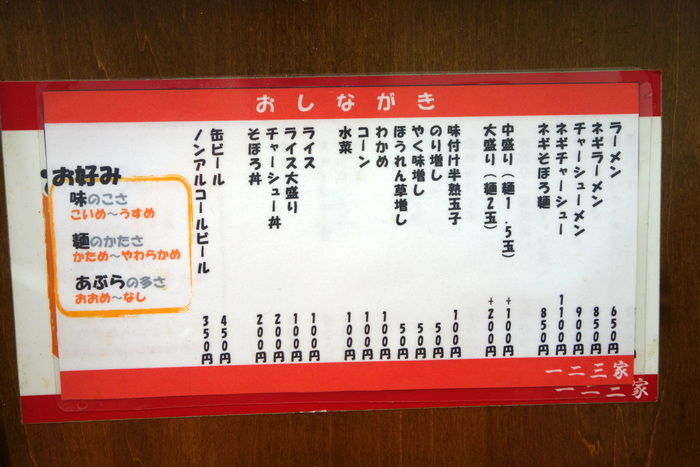 おしながき
ラーメン 650円
ネギラーメン 850円
チャーシューメン 900円
ネギチャーシュー 1100円
ネギそぼろ麺 850円
中盛り（麺1.5玉） +100円
大盛り（麺2玉） +200円
味付け半熟玉子 100円
のり増し 50円
やく味増し 50円
ほうれん草増し 50円
わかめ 100円
コーン 100円
水菜 100円
ライス 100円
ライス大盛り 100円
チャーシュー丼 200円
そぼろ丼 200円
缶ビール 450円
ノンアルコールビール 350円
お好み
味のこさ
こいめ〜うすめ
麺のかたさ
かため〜やわらかめ
あぶらの多さ
おおめ〜なし
一二三家
一二三家